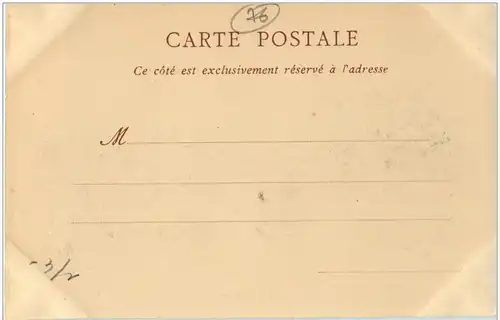 76
CARTE POSTALE
Ce côté est exclusivement réservé à l'adresse
M